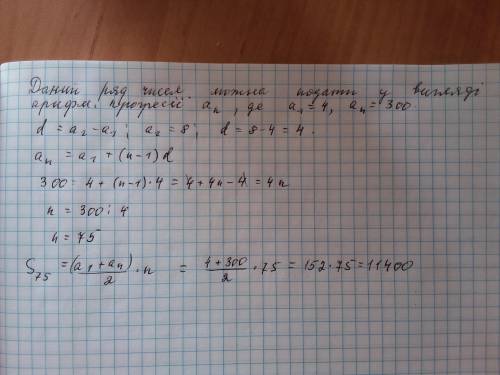 Даний ряд чисел можна подати у вигляді
арифм. прогресії aₙ, де a₁ = 4, aₙ = 300.
d = a₂ - a₁; a₂ = 8; d = 8 - 4 = 4.
aₙ = a₁ + (n-1)d
300 = 4 + (n-1)·4 = 4 + 4n - 4 = 4n
n = 300 : 4
n = 75
S₇₅ = (a₁ + aₙ)/2 · n = (4 + 300)/2 · 75 = 152 · 75 = 11400